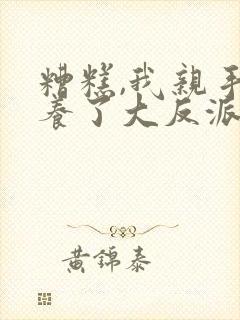 糟糕,我親手
養了大反派
黃錦泰